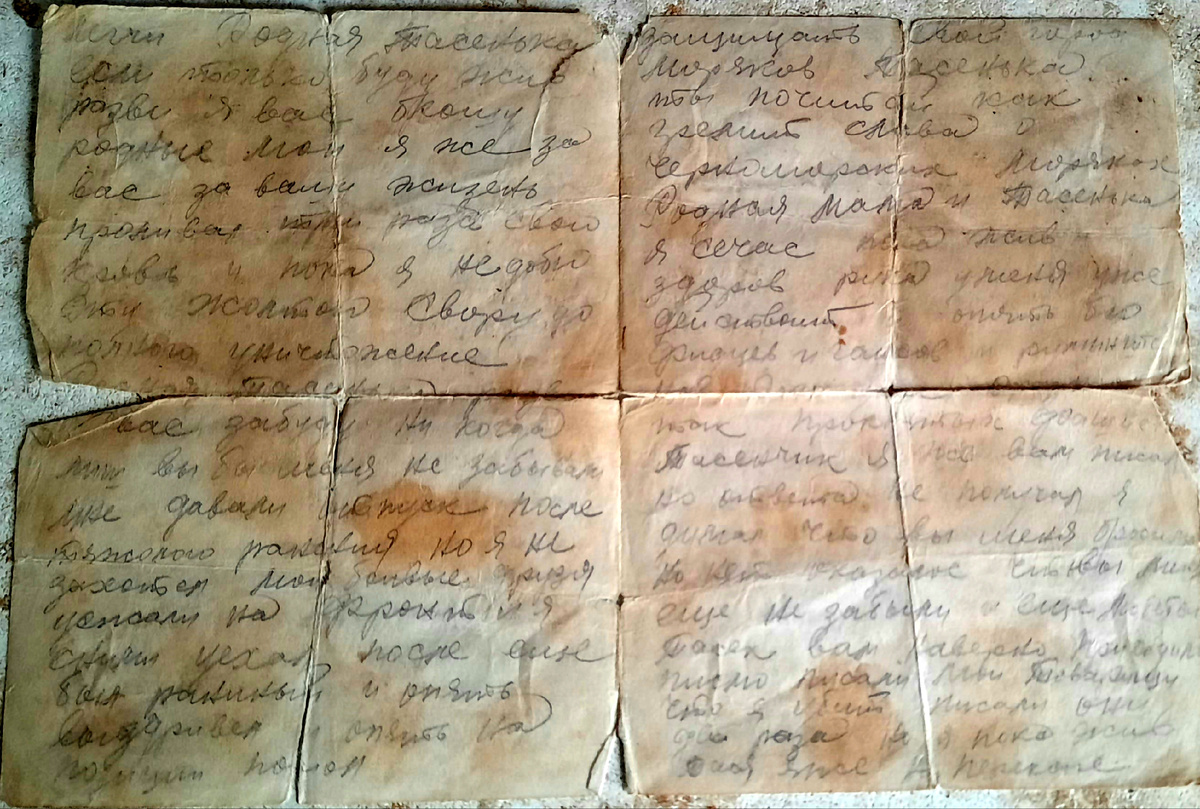 Родная Тасенька
если только буду жив
разви я вас брошу
родные мои я же за
вас за вами жизень
проливал три раза свою
кровь и пока я не добю
эту жолтою свору до
полного уничтожение
Родная Тасенька
вас забуду ни когда
вы бы меня не забывали
мне давали отпуск после
тяжолого ранения но я не
захотел мои боевые друзя
уежали на фронт и я
сними уехал после еще
был раниный и опять
и опять на
позиции
защищать свой город
моряков Тасенька
ты почитай как
гремит слава о
черноморских моряках
Родная мама и Тасенька
я сечас пока жив
здоров рука уменя уже
действоит и опять бю
фрицев и гансов и
так проклятых
Тасенчик я же вам писал
но ответа не получал я
думал что вы меня бросили
но нет оказалос что вы меня
еще не забыли и еще
Тасек вам наверно приходило
писмо писали мои товарищи
что я убит писали они
два раза но я пока жив
уже